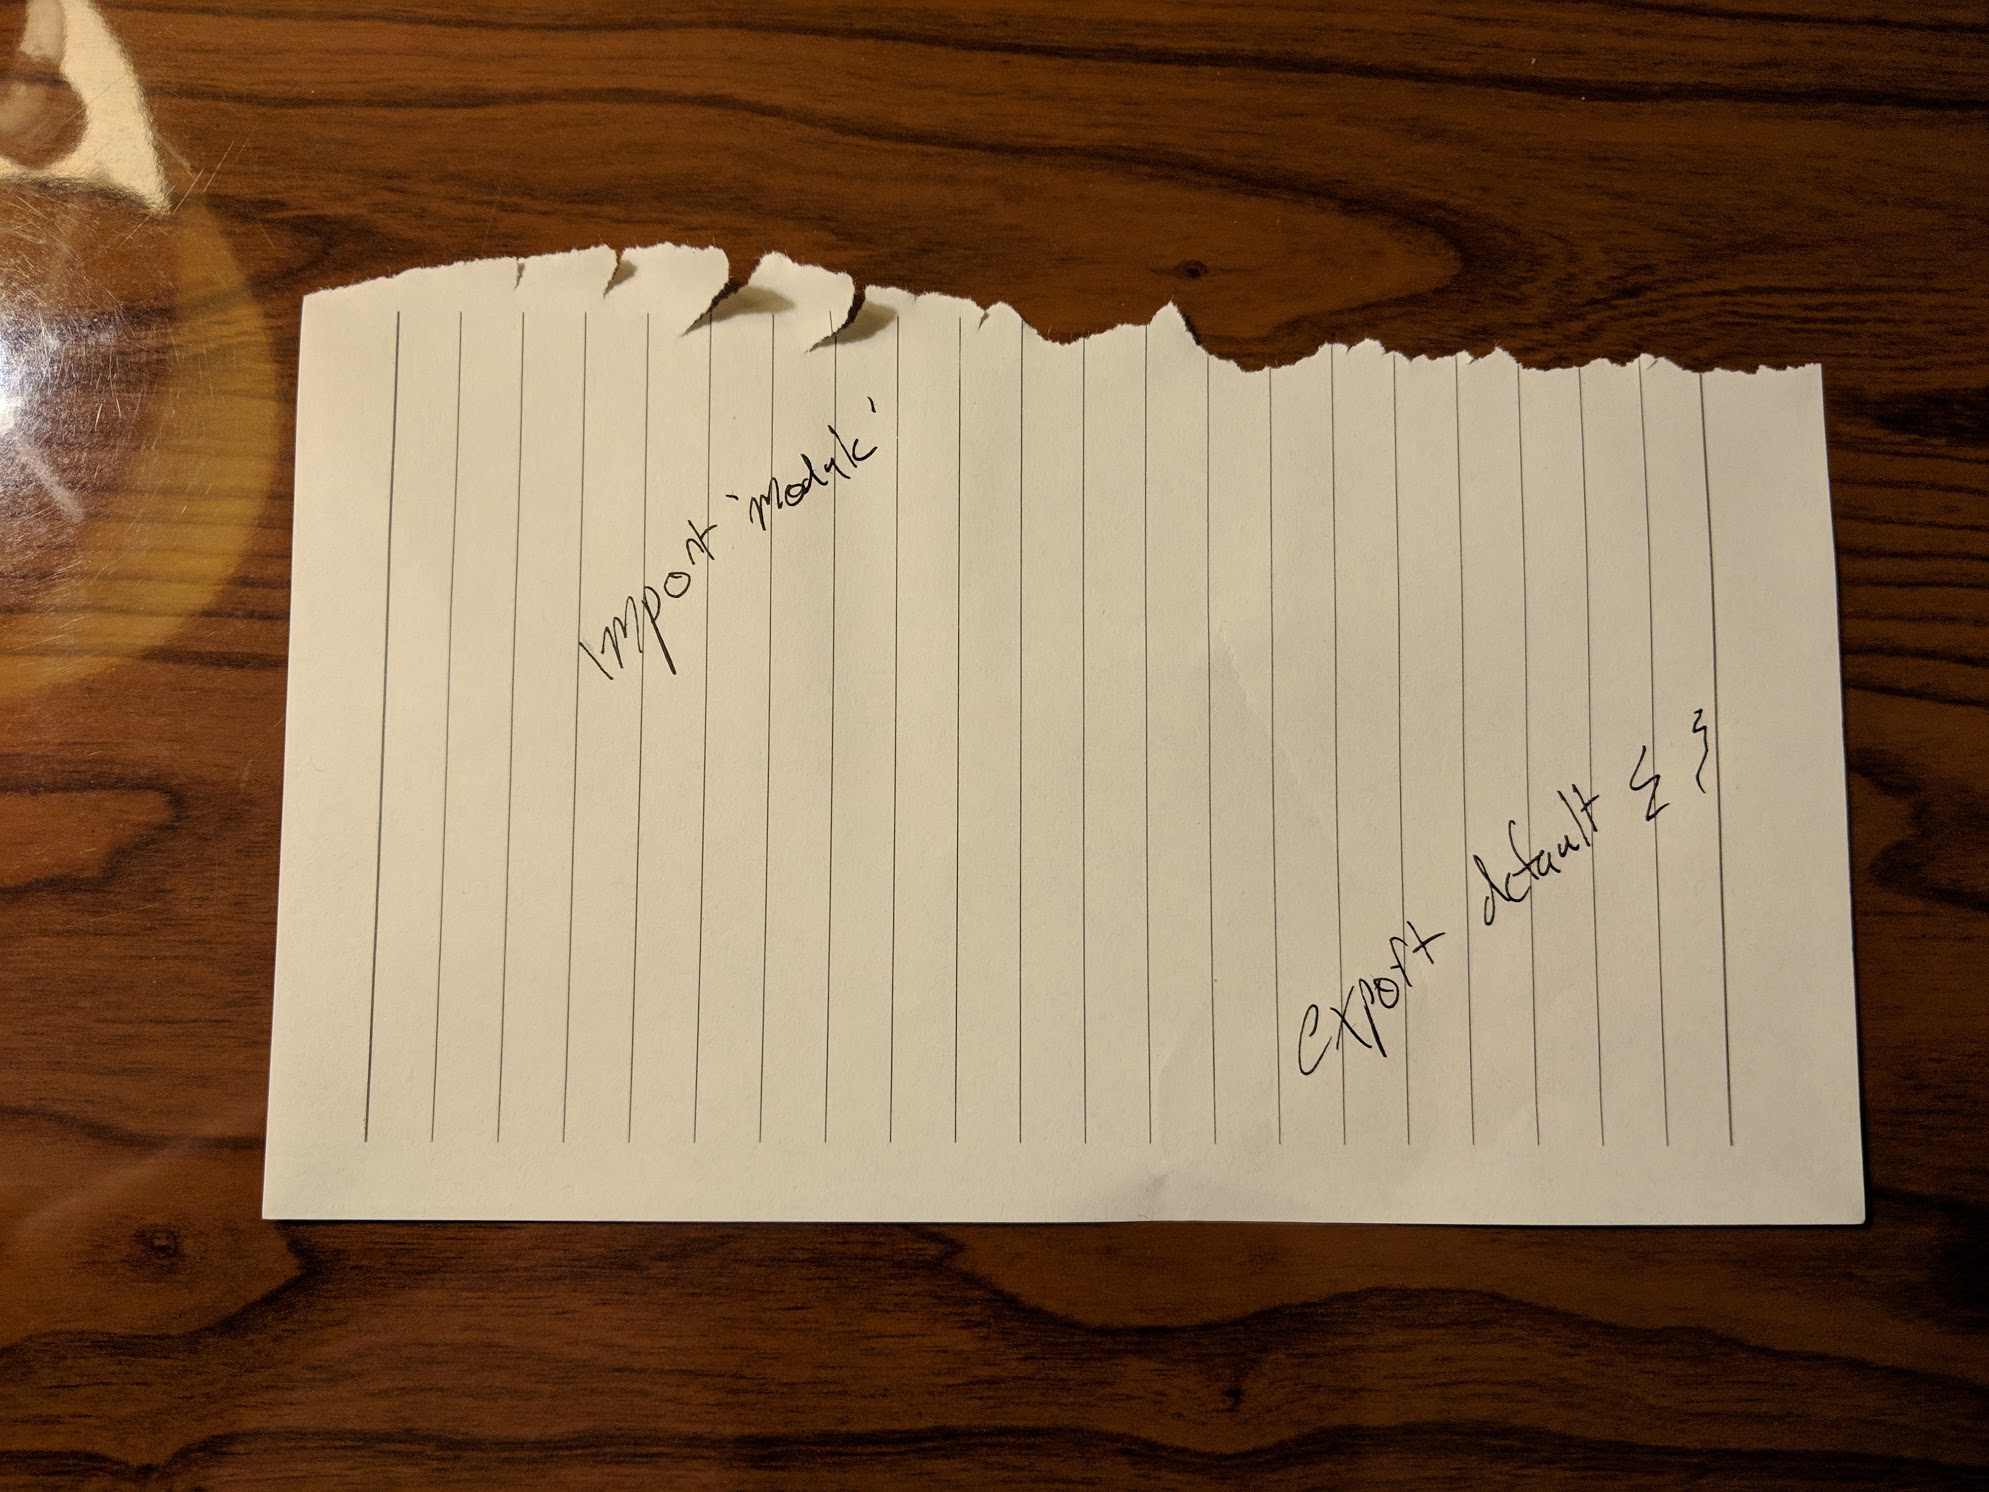 import 'module'
export default { }